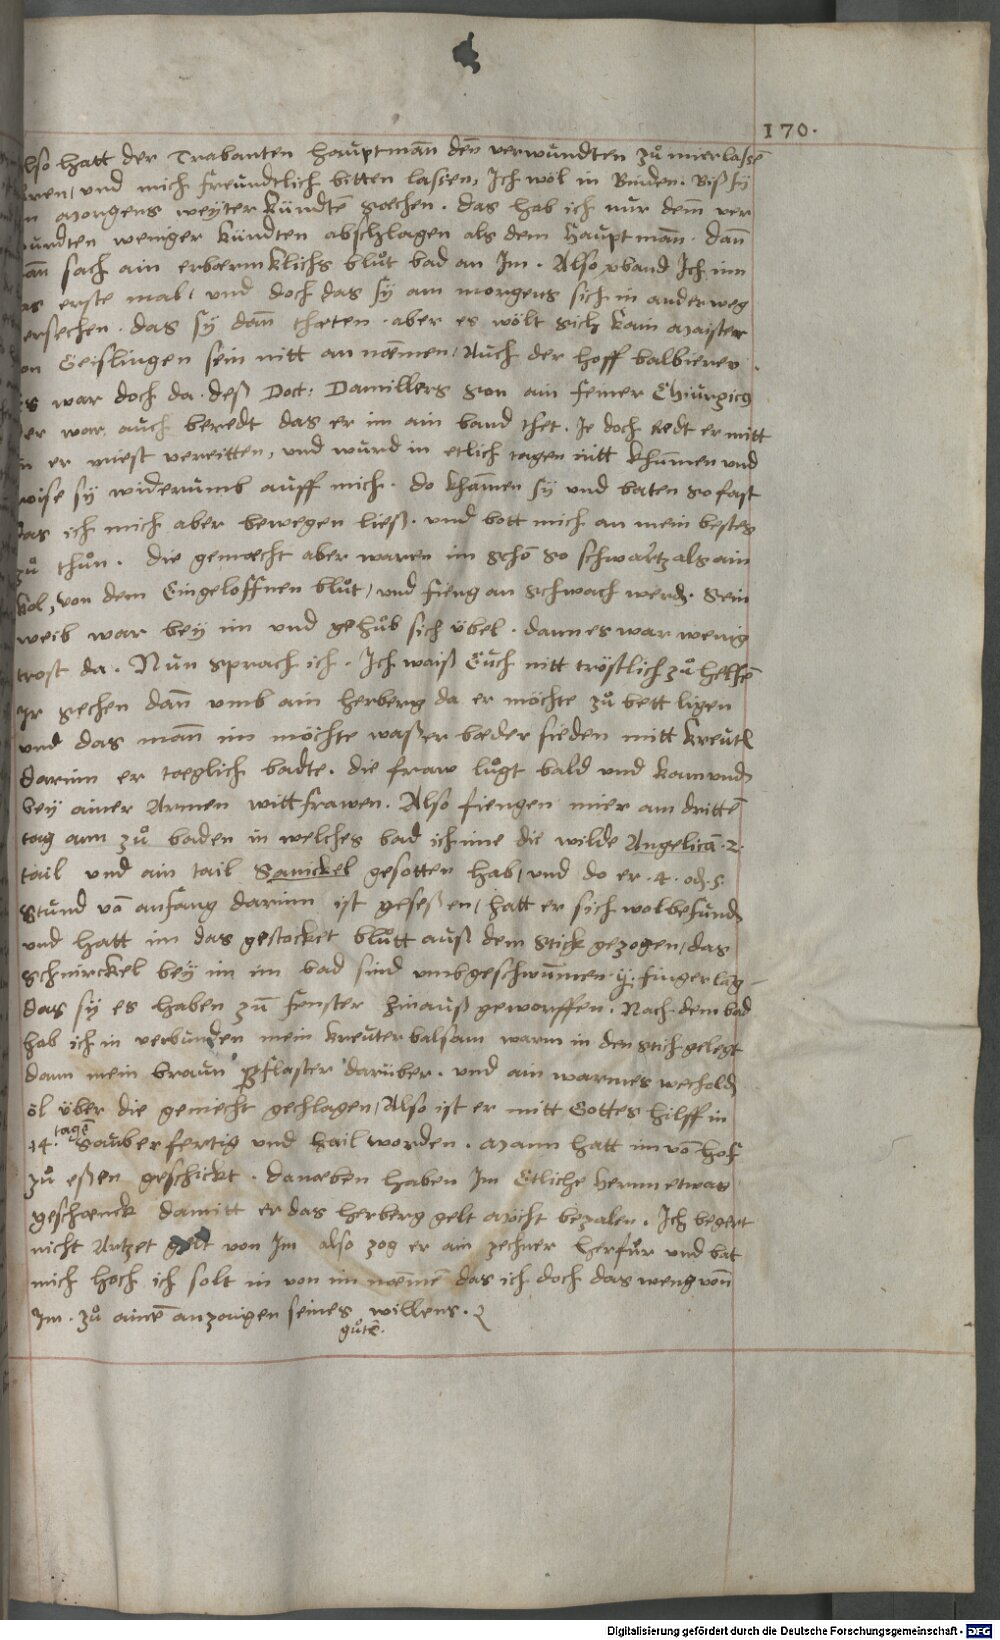 170.
lso hatt der Trabanten hauptman̄ den̄ verwundten zů mier lassē
ren, und mich freundtlich bitten lassen, Ich wöl in Binden. Biß sy
n morgens weyter kündtē sæchen. das hab ich nur dem ver
undten weniger kündten abschlagen als dem Hauptman̄. dan̄
an̄ sach ain erbærmklichs blůt bad an Im. Also vband Ich im
as erste mal, und doch das sy am morgens sich in ander weg
ersechen. das sy dan̄ thæten. aber es wölt sich kain maister
on Geislingen sein nitt an næmen, Auch der hoff balbierer.
es war doch da. deß Doct: Damillers son ain feiner Chirurgicus
er war auch beredt das er im ain band thet. Je doch redt er nitt
n er miest verreitten, und wurd in etlich tagen nitt khum̄en und
wise sy widerumb auff mich. do kham̄en sy und baten so fast
das ich mich aber bewegen ließ. und bott mich an mein bestes
zů thůn. die gemæcht aber waren im schō so schwartz als ain
kol, von dem Eingeloffnen blůt, und fieng an schwach werdē. Sein
weib war bey im und gehůb sich übel. dann es war wenig
trost da. Nun sprach ich. Ich waiß Euch nitt tröstlich zů helffē
Ir sechen dan̄ umb ain herberg da er möchte zů bett ligen
und das man̄ im möchte waßer bæder sieden mitt kreutē
darinn er tæglich badte. die fraw lůgt bald und kam und
bey ainer Armen wittfrawen. Also fiengen mier am drittē
tag ann zů baden in welches bad ich ime die wilde Angelicā .2.
tail und ain tail Sanickel gesotten hab, und do er .4. od. 5.
Stund vō anfang darinn ist geseßen, hatt er sich wol befundē
und hatt im das gestocket blůtt auß dem stich gezogen, das
schnirckel bey im im bad sind umbgeschwum̄en ij. finger lang
das sy es haben zum̄ fenster hinauß geworffen. Nach dem bad
hab ich in verbunden mein kreuter balsam warm in den stich gelegt
dann mein braun pflaster darüber. und ain warmes wecholdē
öl über die gemecht gechlagen, Also ist er mitt Gottes hilff in
14. tagē sauber fertig und hail worden. mann hatt im vō Hof
zů eßen geschickt. danæben haben Im Etliche herrn etwas
geschænck damitt er das herberg gelt möcht bezalen. Ich begert
nicht Artzet gelt von Im also zog er ain zechner herfür und bat
mich hoch ich solt in von im næmē das ich doch das weng von̄
Im. zů ainē anzaigen seines gůtē willens.
Digitalisierung gefördert durch die Deutsche Forschungsgemeinschaft - DFG